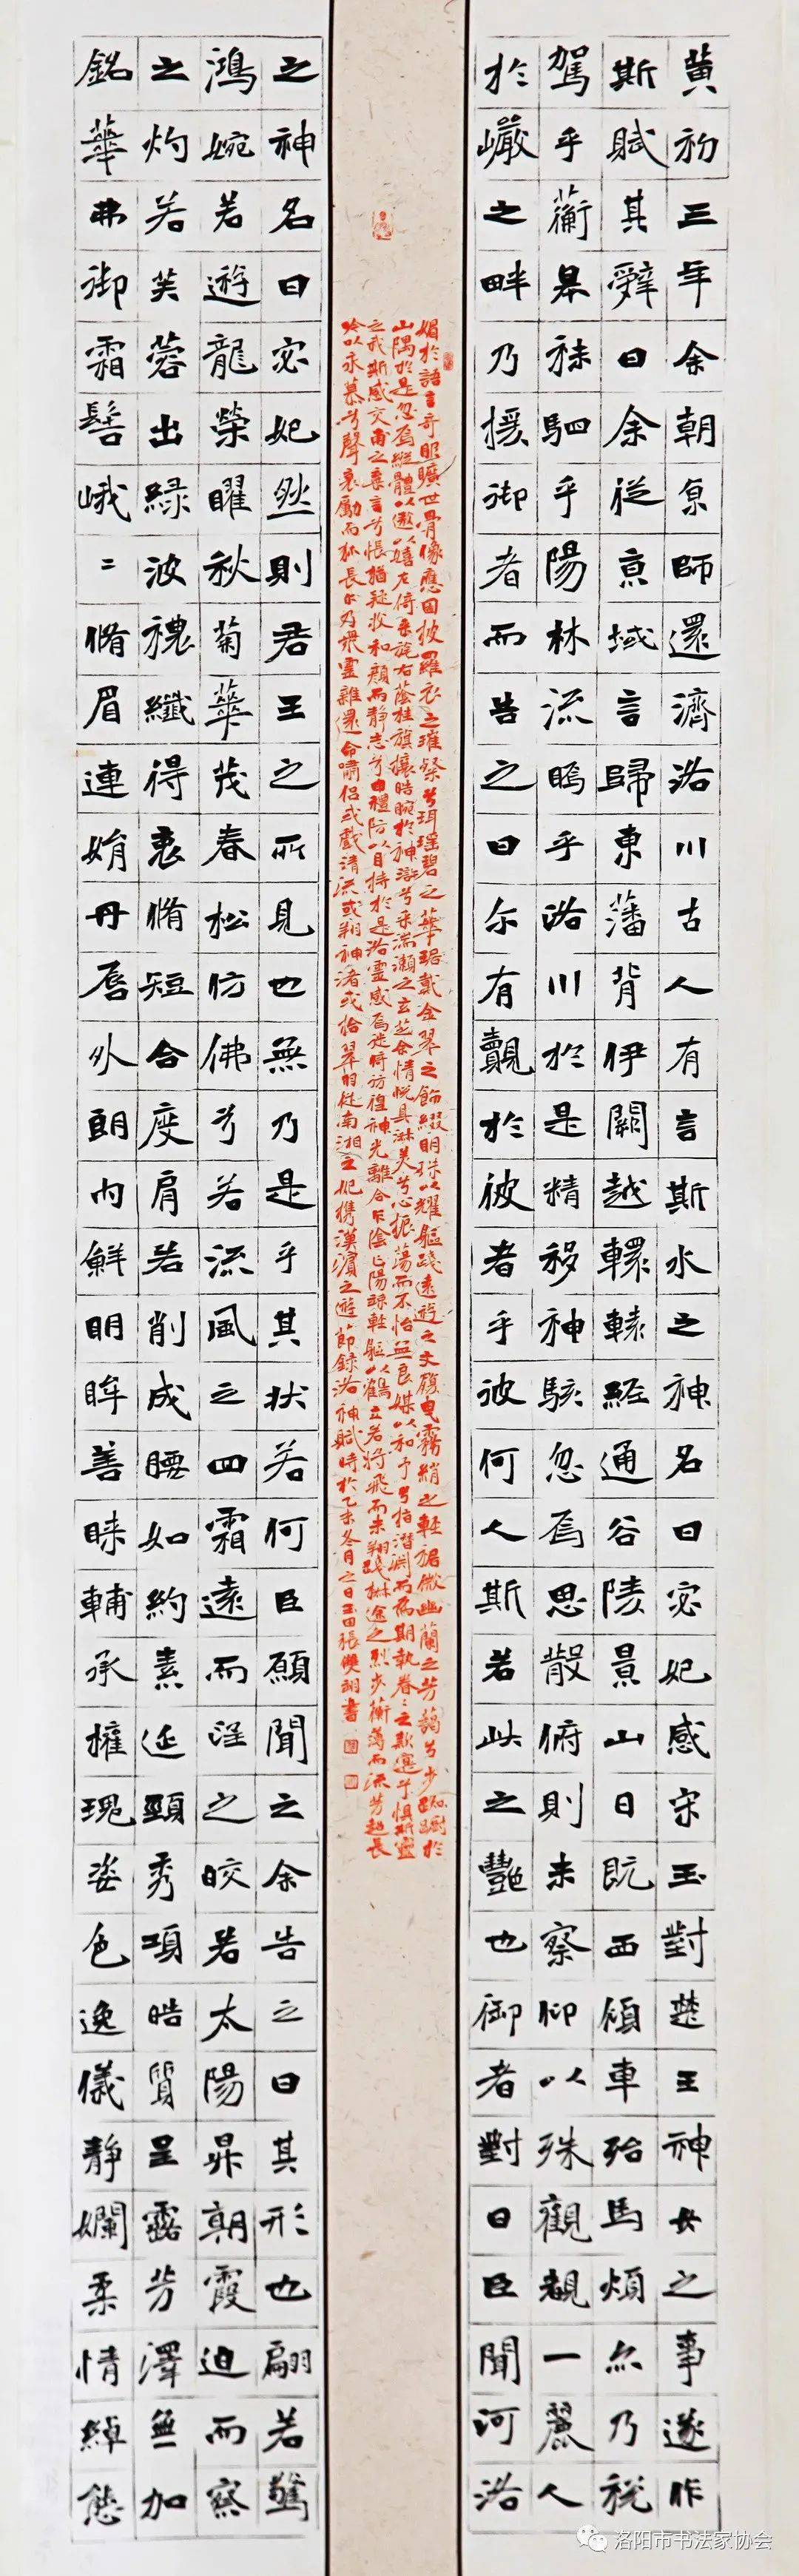 黄初三年余朝京師還濟洛川古人有言斯水之神名曰宓妃感宋玉對楚王神女之事遂作
斯賦其辭曰余從京域言歸東藩背伊闕越轘轅經通谷陵景山日既西傾車殆馬煩尔乃税
駕乎蘅皋秣駟乎陽林流眄乎洛川於是精移神駭忽焉思散俯則未察仰以殊觀覩一麗人
於巖之畔乃援御者而告之曰尔有覿於彼者乎彼何人斯若此之艷也御者對曰臣聞河洛
之神名曰宓妃然則君王之所見也無乃是乎其状若何臣願聞之余告之曰其形也翩若驚
鴻婉若遊龍榮曜秋菊華茂春松仿佛兮若流風之四霜遠而淫之皎若太陽昇朝霞迫而察
之灼若芙蓉出緑波穠纖得衷脩短合度肩若削成腰如約素延頸秀項皓質呈露芳澤無加
鉛華弗御霜髻峨二脩眉連娟丹唇外朗内鮮明眸善睞輔承權瑰姿色逸儀静嫻柔情綽態
媚於語言奇服曠世骨像應圖披羅衣之璀粲兮珥瑶碧之華琚戴金翠之飾綴明珠以耀軀踐遠遊之文履曳霧綃之輕裾微幽蘭之芳藹兮步踟躕於
山隅於是忽焉縱體以遨以嬉左倚采旄右蔭桂旗攘皓腕於神滸兮采湍瀨之玄芝余情悦其淑美兮心振蕩而不怡無良媒以和予兮指潛淵而為期執眷二之款實乎懼斯靈
之我斯感交甫之棄言兮悵猶疑收和顏而静志兮申禮防以自持於是洛靈感焉徙倚彷徨神光離合乍陰乍陽竦輕軀以鶴立若將飛而未翔踐椒途之烈步蘅薄而流芳超長
吟以永慕兮聲哀厲而彌長尔乃衆靈雜還命嘯侣或戲清流或翔神渚或拾翠羽從南湘之妃攜漢濱之遊節録洛神賦時於乙未冬月之日玉田張雙翊書
洛阳市书法家协会